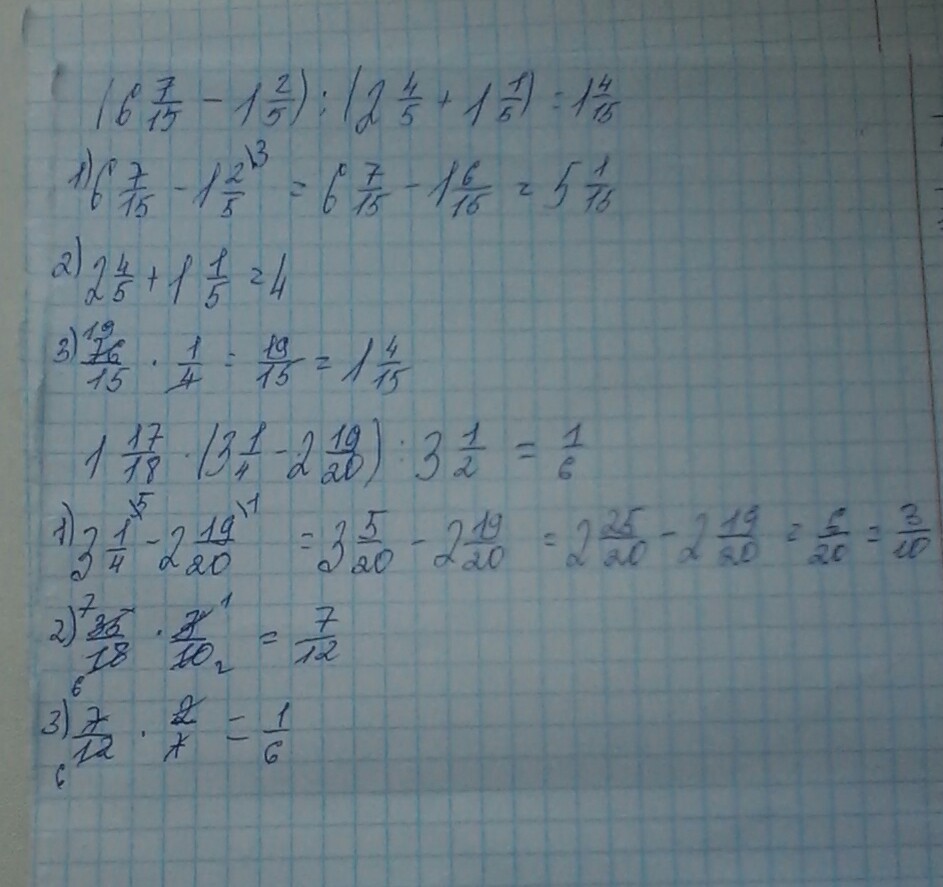 (6 7/15 − 1 2/5) : (2 4/5 + 1 1/5) = 1 4/15
1) 6 7/15 − 1 2/5 \3 = 6 7/15 − 1 6/15 = 5 1/15
2) 2 4/5 + 1 1/5 = 4
3) 19 76/15 · 1/4 = 19/15 = 1 4/15
1 17/18 · (3 1/4 − 2 19/20) : 3 1/2 = 1/6
1) 3 1/4 \5 − 2 19/20 \1 = 3 5/20 − 2 19/20 = 2 25/20 − 2 19/20 = 6/20 = 3/10
2) 7 35/18 6 · 3/10 1 2 = 7/12
3) 7/12 6 · 2/7 = 1/6